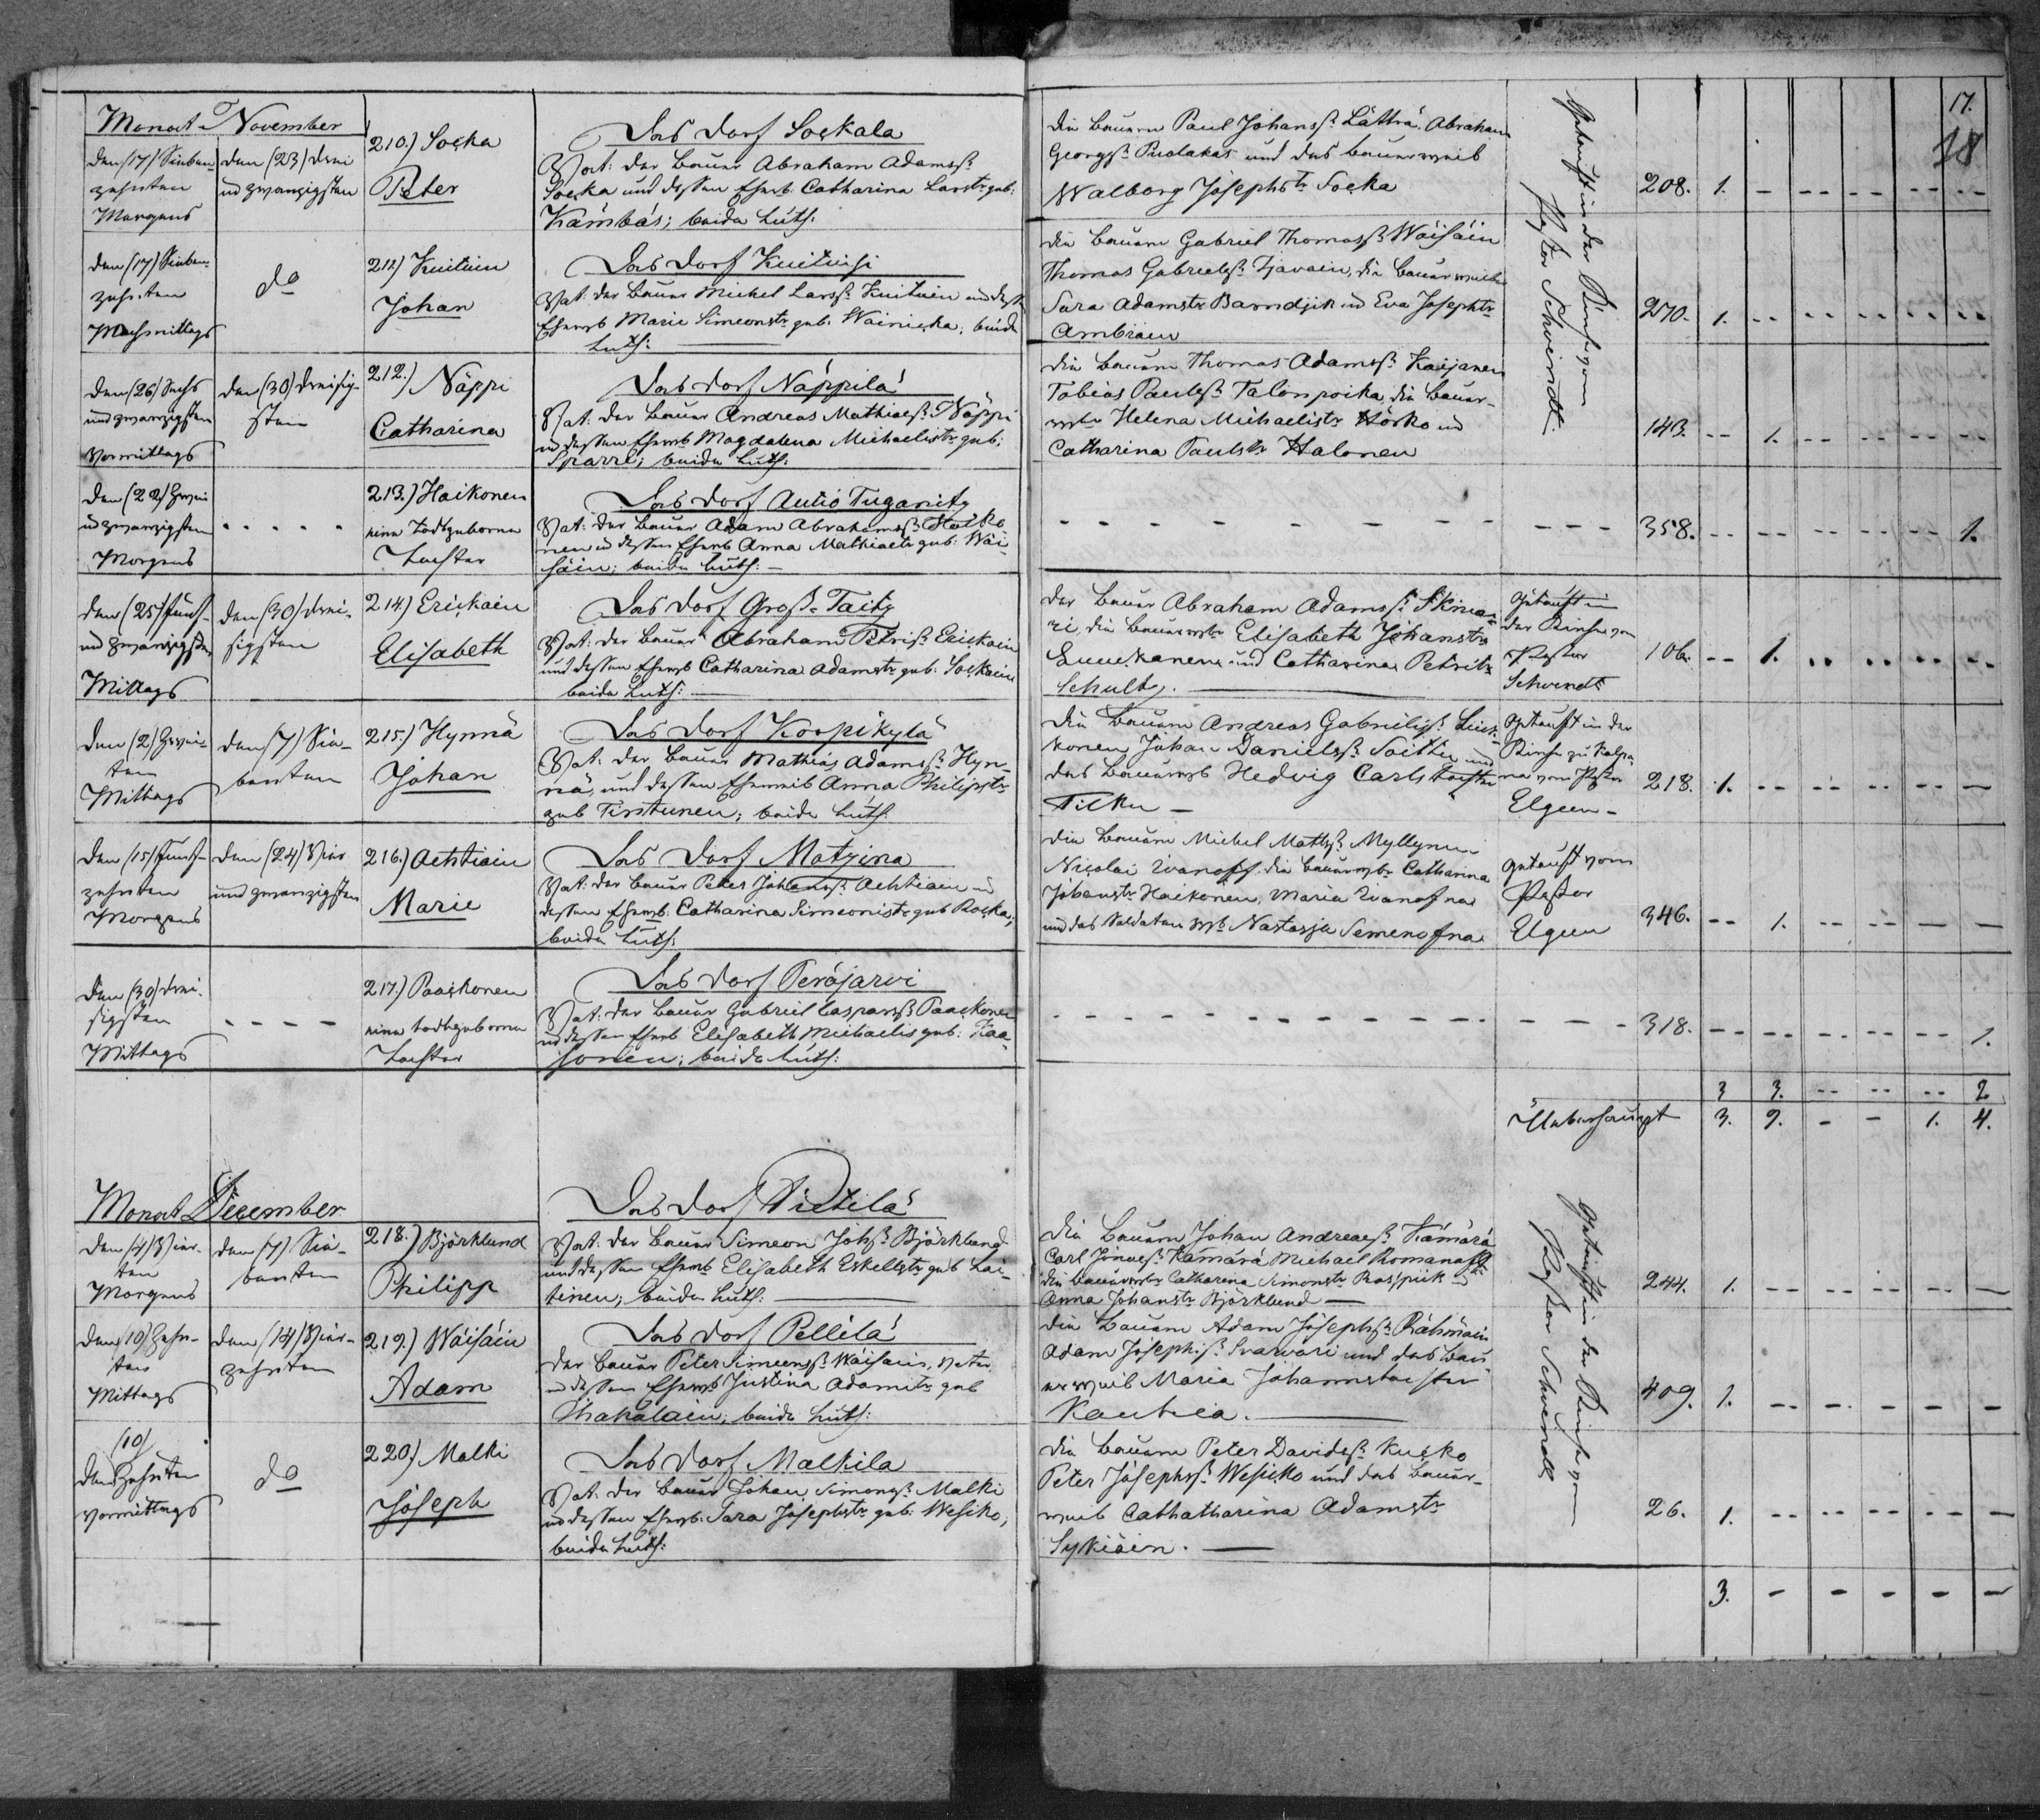 17.
18
Monat November
den (17) Sieben-
zehnten
Morgens
den (23) drei
und zwanzigsten
210.) Soçka
Peter
Das Dorf Soçkala
Vat: der Bauer Abraham Adamsß.
Soçka und dessen Ehewb. Catharina Larstr. geb:
Kämbäs; beide Luth:
die Bauern Paul Johansß. Lätträ, Abraham
Georgsß. Puolakas und das Bauerweib
Walborg Josephstr. Soçka
Getauft in der Kirche vom
Pastor Schwindt.
208. 1. - - - - -
den (17) Sieben-
zehnten
Nachmittags
do
211.) Kuituin
Johan
Das Dorf Kuituisi
Vat: der Bauer Michel Larsß. Kuituin und dess:
Ehewb Marie Simeonstr. geb. Wainiçka; beide
Luth:
die Bauern Gabriel Thomasß. Wäisäin
Thomas Gabrielsß. Tjavain, die Bauerweiber
Sara Adamstr. Barndjik und Eva Josephstr.
Ambiäin
270. 1. - - - - -
den (26) Sechs
und zwanzigsten
Vormittags
den (30) dreißig-
sten
212.) Näppi
Catharina
Das Dorf Näppilä
Vat: der Bauer Andreas Mathiasß. Näppi
und dessen Ehewb Magdalena Michaelistr. geb:
Sparre; beide Luth:
die Bauern Thomas Adamsß. Kaijanen
Tobias Paulsß. Talonpoika, die Bauer-
wbr. Helena Michaelistr. Hörkö und
Catharina Paulstr. Halonen
143. - 1. - - - -
den (22) Zwei
und zwanzigsten
Morgens
- - - - -
213.) Haikonen
eine todtgeborne
Tochter
Das Dorf Autio Tuganitz
Vat: der Bauer Adam Abrahamsß. Haiko
nen und dessen Ehewb Anna Mathiaetr. geb: Wäi-
säin; beide Luth: -
358. - - - - - 1.
den (25) Fünf-
und zwanzigsten
Mittags
den (30) drei-
ßigsten
214.) Eriçkain
Elisabeth
Das Dorf Groß-Taitz
Vat: der Bauer Abraham Petrisß. Eriçkain
und dessen Ehewb Catharina Adamstr. geb. Soçkain
beide Luth:
der Bauer Abraham Adamsß. Skina-
ri, die Bauerwbr. Elisabeth Johanstr.
und Catharina Petritr.
Schultz.
Getauft in
der Kirche vom
Pastor
Schwindt
106. - 1. - - - -
den (2) Zwei-
ten
Mittags
den (7) Sie-
benten
215.) Hynnä
Johan
Das Dorf Korpikylä
Vat: der Bauer Mathias Adamsß. Hyn-
nä, und dessen Eheweib Anna Philipstr.
geb Tirstunen; beide Luth:
die Bauern Andreas Gabrielsß.
konen Johan Danielsß. Soittu und
das Bauerwb Hedvig Carlstochter
Tilku -
Getauft in der
Kirche zu
na vom Pastor
Elgeen -
218. 1. - - - - -
den (15) Fünf-
zehnten
Morgens
den (24) Vier
und zwanzigsten
216.) Aehtiäin
Marie
Das Dorf Motzina
Vat: der Bauer Peter Johansß. Aehtiäin und
dessen Ehewb. Catharina Simeonistr. geb Roçka;
beide Luth:
die Bauern Michel Mathsß. Myllynen
Nicolai Ivanoff, die Bauerwbr Catharina
Johanstr. Haikonen, Maria Ivanofna
und das Soldaten Wb Nastasja Semenofna
getauft vom
Pastor
Elgeen
346. - 1. - - - -
den (30) drei-
ßigsten
Mittags
- - - -
217.) Paaçkonen
eine todtgeborne
Tochter
Das Dorf Peräjärvi
Vat: der Bauer Gabriel Casparsß. Paaçkonen
und dessen Ehewb Elisabeth Michaelis geb: Kaa-
sonen; beide Luth:
318. - - - - - 1.
3 3. - - - 2
Ueberhaupt 3. 9. - - 1. 4.
Monat December
den (4) Vier-
ten
Morgens
den (7) Sie-
benten
218.) Björklund
Philipp
Das Dorf Pietilä
Vat: der Bauer Simeon Johsß. Björklund
und dessen Ehewb Elisabeth Eskelstr. geb Lai-
tinen; beide Luth:
die Bauern Johan Andreaesß. Kämärä
Carl Jonaesß. Kämärä Michael Romanoff
die Bauerwbr Catharina Simonstr. Raspiik und
Anna Johanstr. Björklund
Getauft in der Kirche vom
Pastor Schwindt
244. 1. - - - - -
den (10) Zehn-
ten
Mittags
den (14) Vier-
zehnten
219.) Wäisäin
Adam
Das Dorf Pellilä
der Bauer Peter Simeonsß. Wäisäin, Vater
und dessen Ehewb Justina Adamitr. geb
beide Luth:
die Bauern Adam Josephsß. Rähmäin
Adam Josephsß. Svarvari und das Bau-
erweib Maria Johannstochter
Kauhia.
409. 1. - - - - -
(10)
den Zehnten
Vormittags
do
220.) Malki
Joseph
Das Dorf Malkila
Vat: der Bauer Johan Simonsß. Malki
und dessen Ehewb. Sara Josephstr. geb: Wesiko;
beide Luth:
die Bauern Peter Davidsß. Kuçko
Peter Josephsß. Wesiçko und das Bauer-
weib Cathatharina Adamstr.
Sykiäin.
26. 1. - - - - -
3. - - - - -